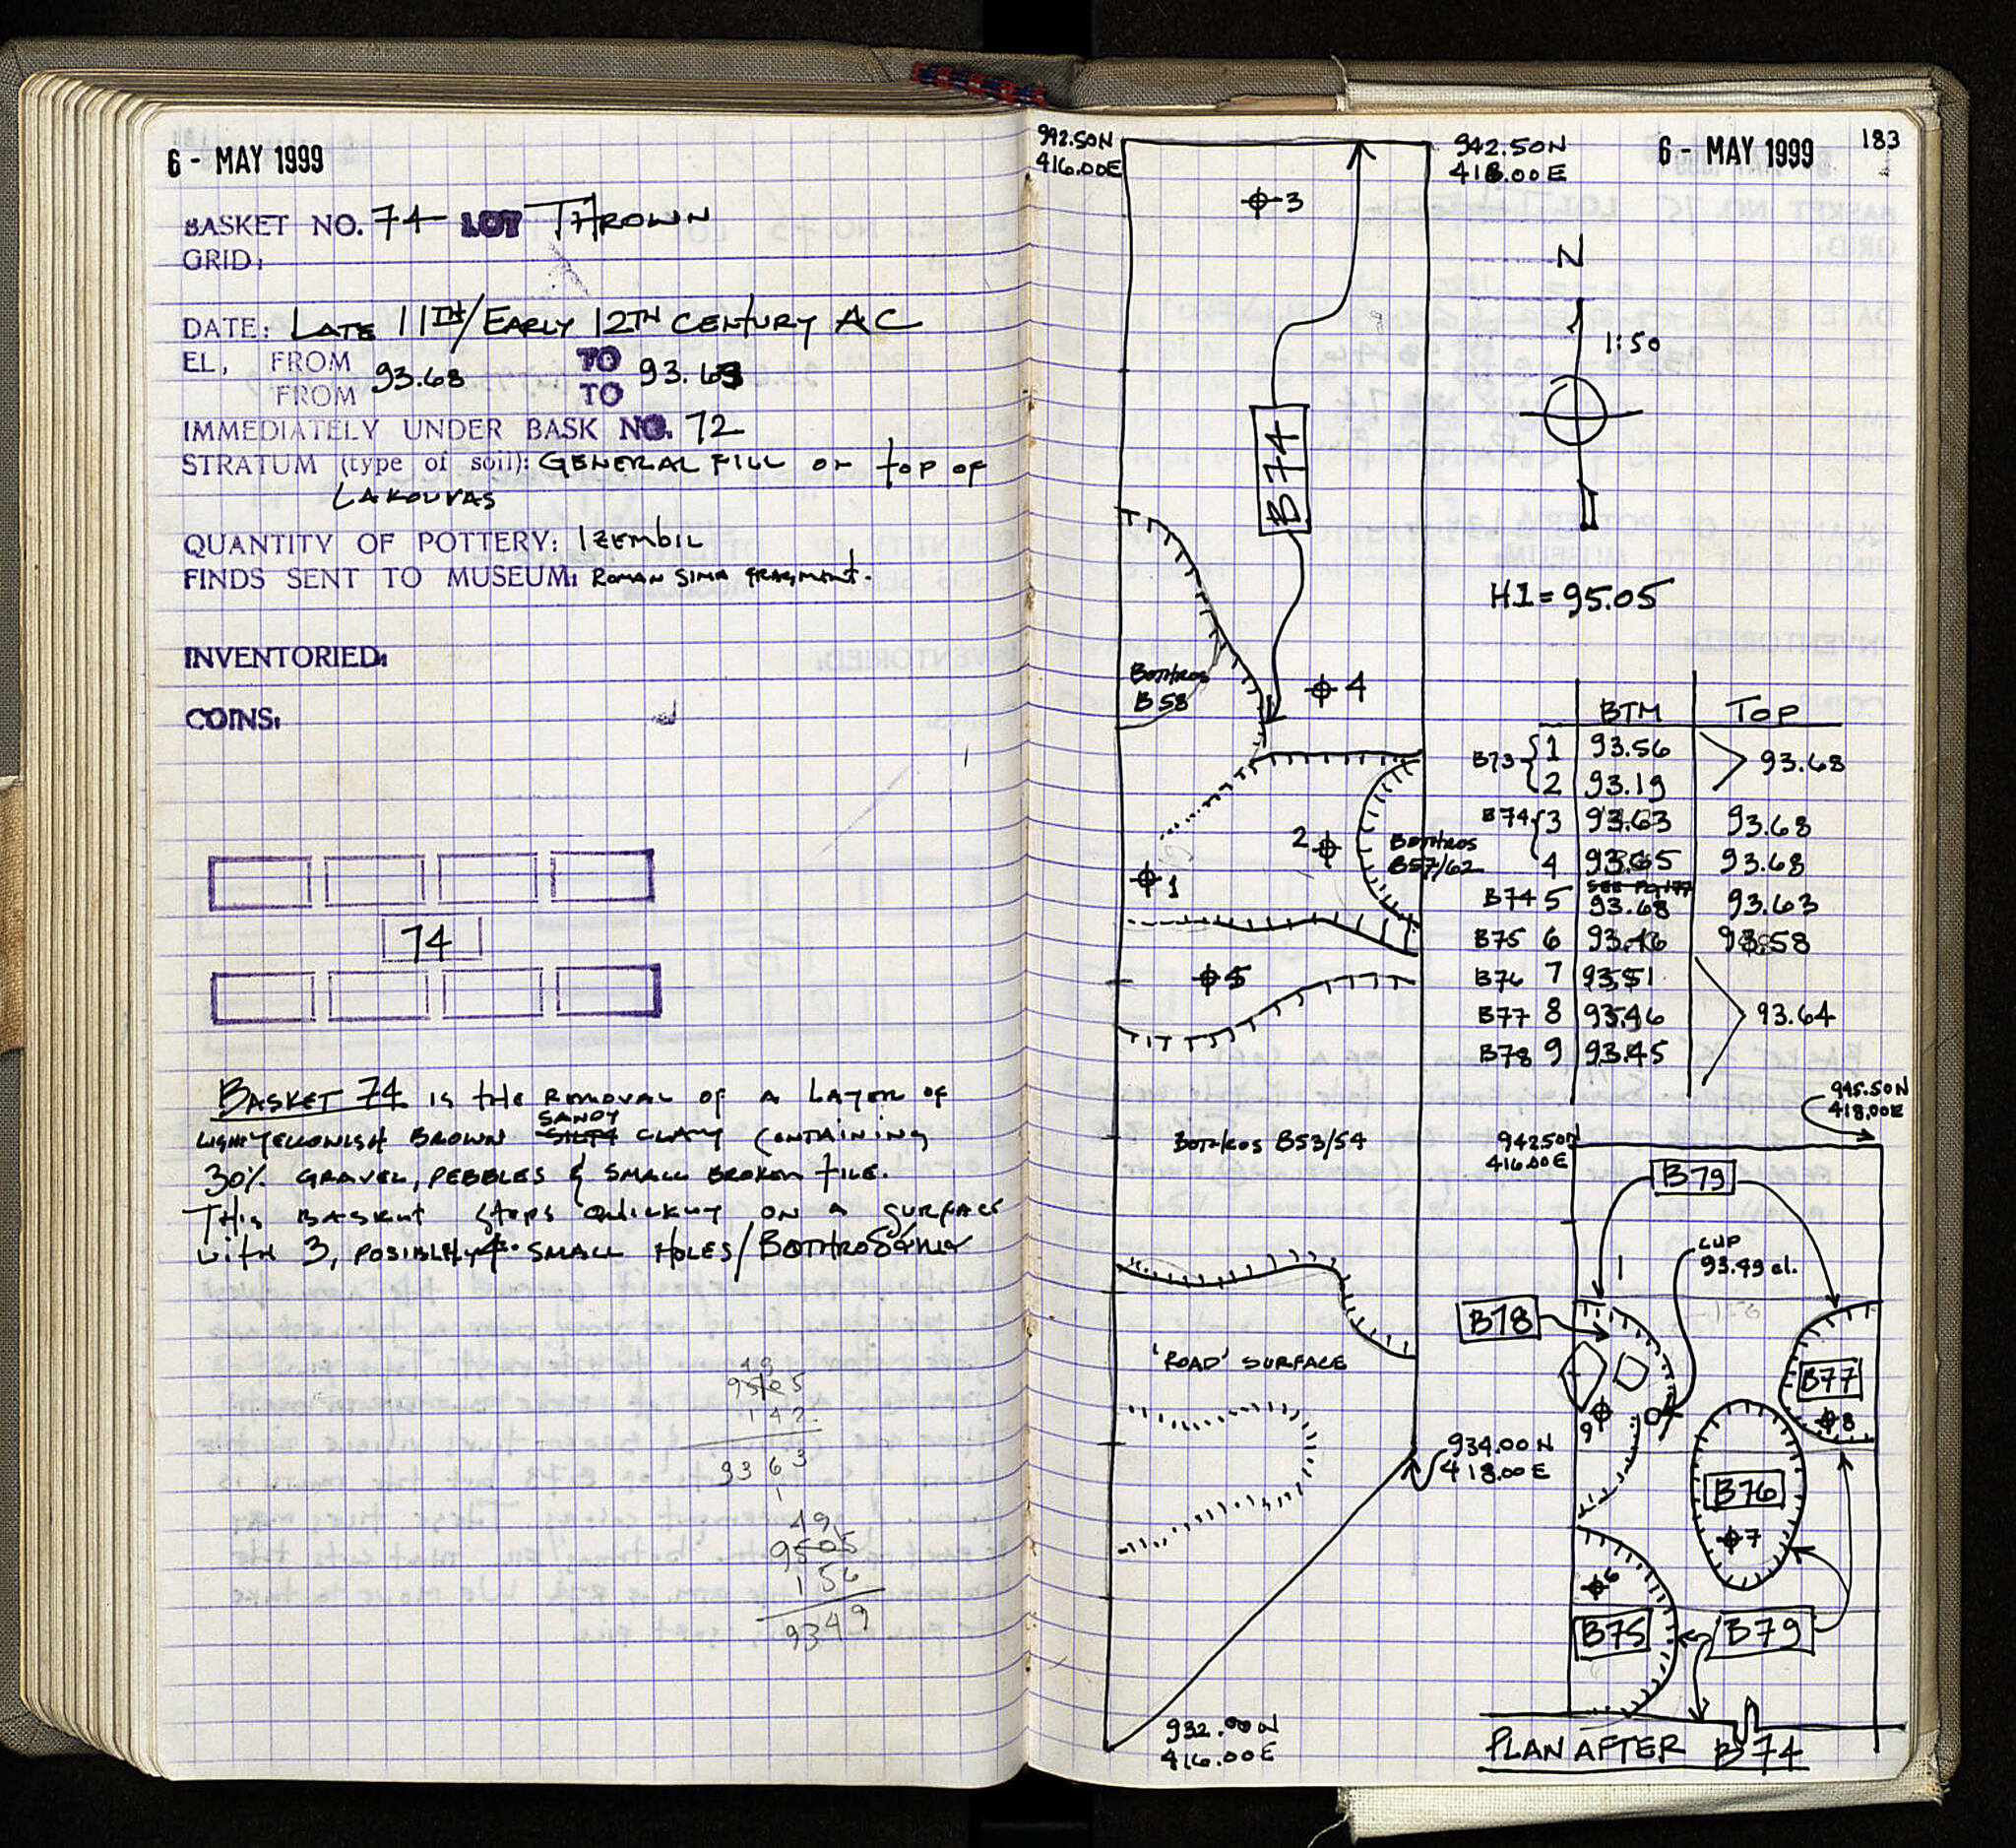 6 - MAY 1999
BASKET NO. 74 LOT THROWN
GRID:
DATE: LATE 11TH/EARLY 12TH CENTURY AC
EL, FROM 93.68 TO 93.63
FROM TO
IMMEDIATELY UNDER BASK NO. 72
STRATUM (type of soil): GENERAL FILL on top of
LAKOUVAS
QUANTITY OF POTTERY: 1 zembil
FINDS SENT TO MUSEUM: ROMAN SIMA fragment.
INVENTORIED:
COINS:
74
BASKET 74 is the REMOVAL OF A LAYER OF
LIGHT YELLOWISH BROWN SILTY SANDY CLAY CONTAINING
30% GRAVEL, PEBBLES & SMALL BROKEN TILE.
THIS BASKET STOPS QUICKLY ON A SURFACE
WITH 3, POSIBLY 4 SMALL HOLES/BOTHROS
49
9505
142
9363
1
49
9505
156
9349
6 - MAY 1999 183
992.50N
416.00E
942.50N
418.00E
3
N
1:50
B74
HI = 95.05
BOTHROS
B58
4
2
BOTHROS
B57/62
1
5
BTM TOP
B73 1 93.56
2 93.19 93.68
B74 3 93.63 93.68
4 93.65 93.68
SEE Pg 177
B74 5 93.68 93.63
B75 6 93.46 93.58
B76 7 93.51
B77 8 93.46 93.64
B78 9 93.45
BOTHROS B53/54
'ROAD' SURFACE
934.00N
418.00E
932.00N
416.00E
945.50N
418.00E
942.50N
416.00E
B79
CUP
93.49 el.
B78
B77
8
9
B76
7
6
B75
B79
PLAN AFTER B74